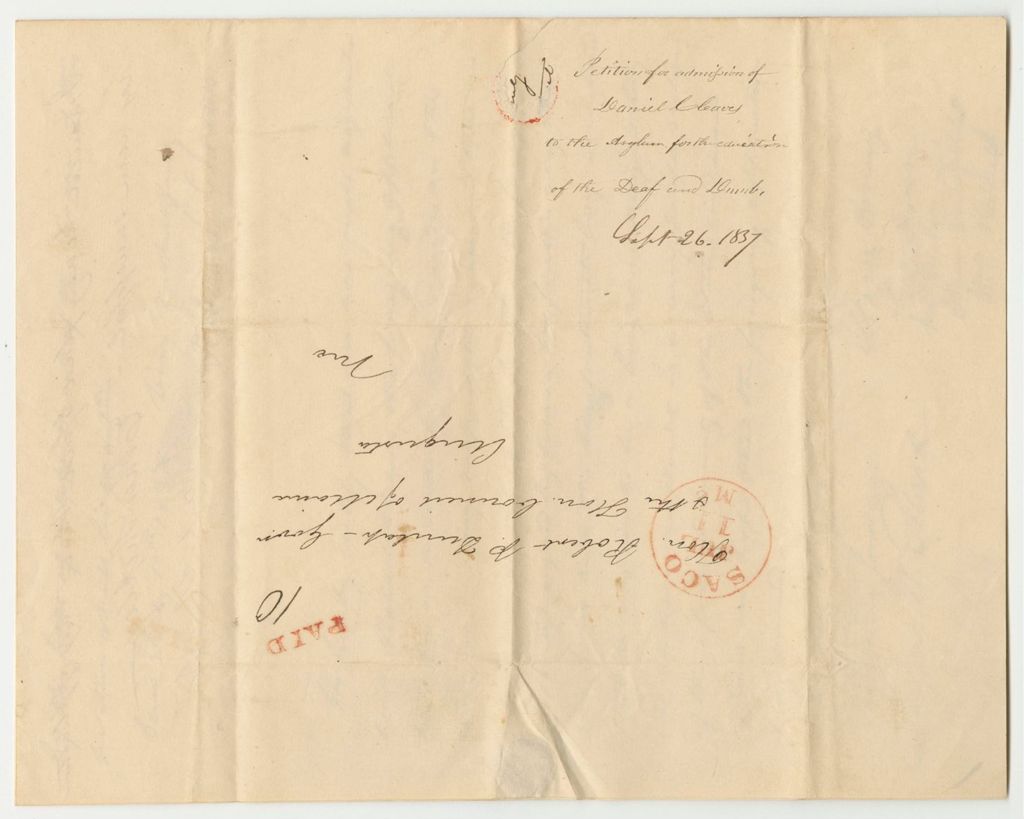 Petition for admission of
Daniel Cleaves
to the Asylum for the education
of the Deaf and Dumb.
Sept 26. 1837
PAID
10
SACO
ME
Hon. Robert P. Dunlap - Govr
& the Hon. Council of Maine
Augusta
Me